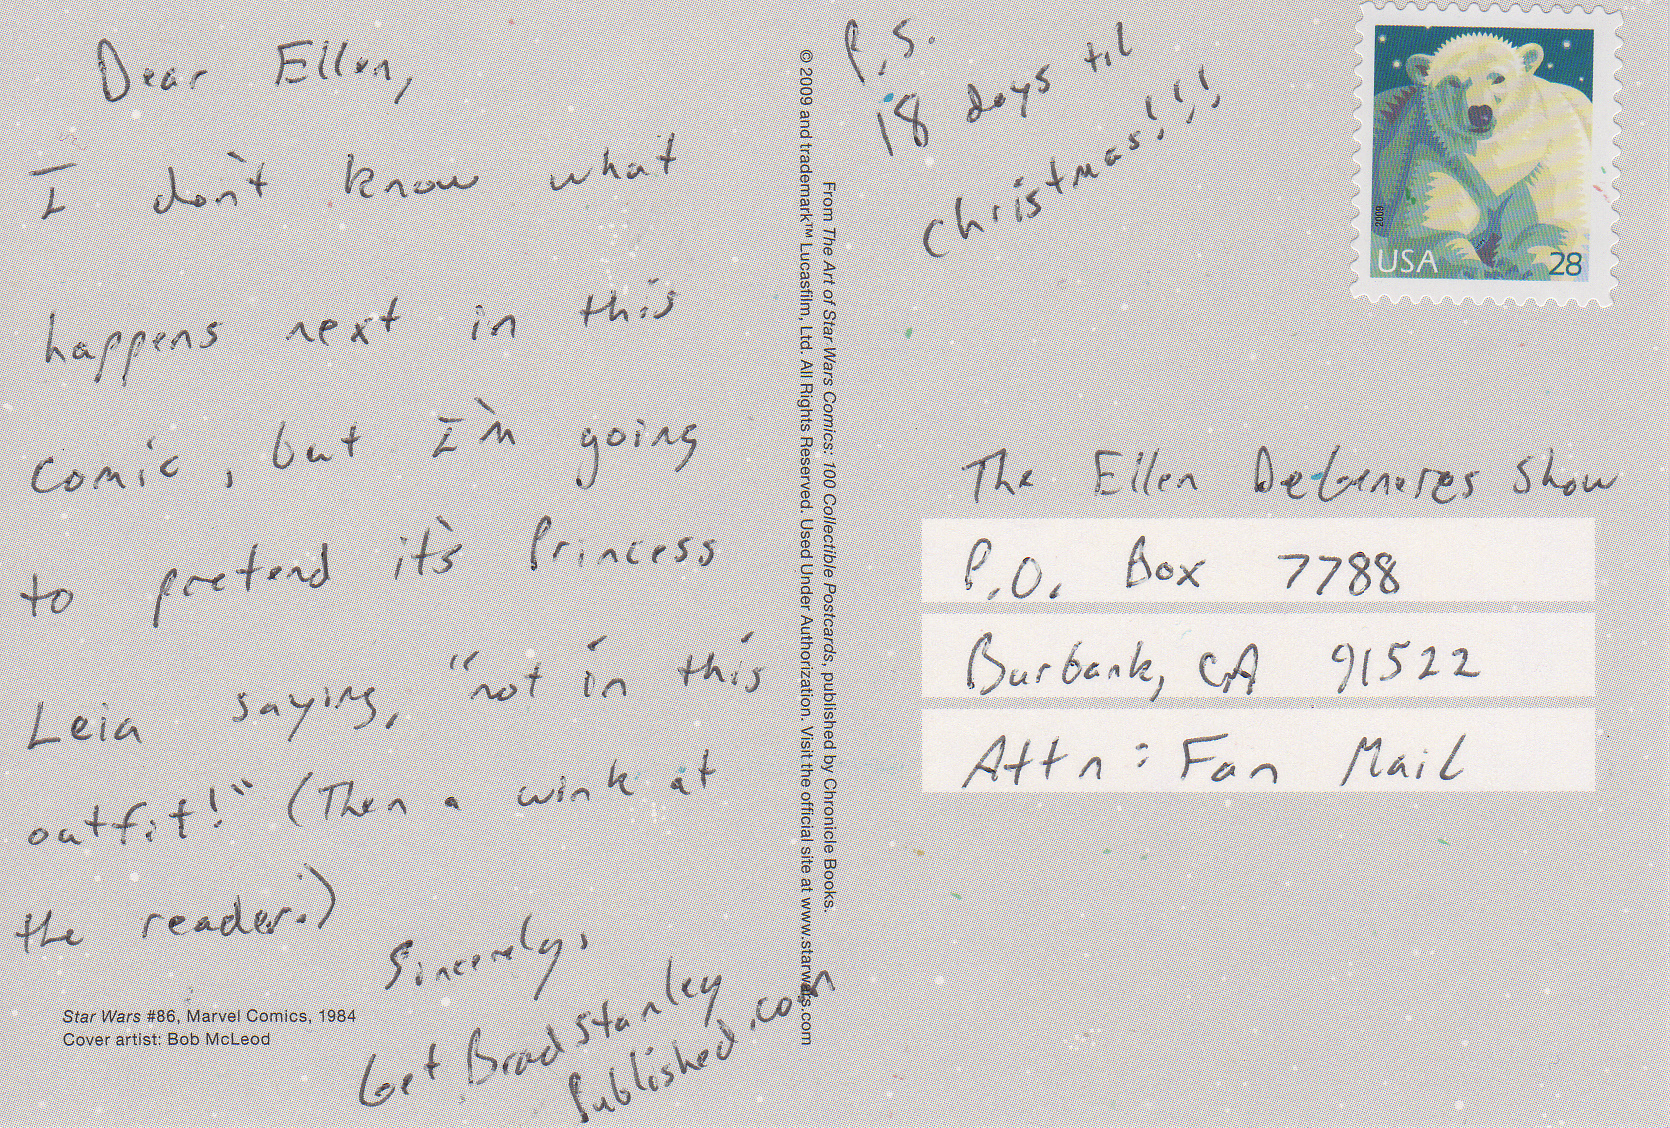 Dear Ellen,
I don't know what
happens next in this
comic, but I'm going
to pretend it's Princess
Leia saying, "not in this
outfit!" (Then a wink at
the reader.)
Sincerely,
Get Brad Stanley
Published.com
Star Wars #86, Marvel Comics, 1984
Cover artist: Bob McLeod
From The Art of Star Wars Comics: 100 Collectible Postcards, published by Chronicle Books.
© 2009 and trademark™ Lucasfilm, Ltd. All Rights Reserved. Used Under Authorization. Visit the official site at www.starwars.com
P.S.
18 days til
christmas!!!
2009
USA 28
The Ellen DeGeneres Show
P.O. Box 7788
Burbank, CA 91522
Attn: Fan Mail